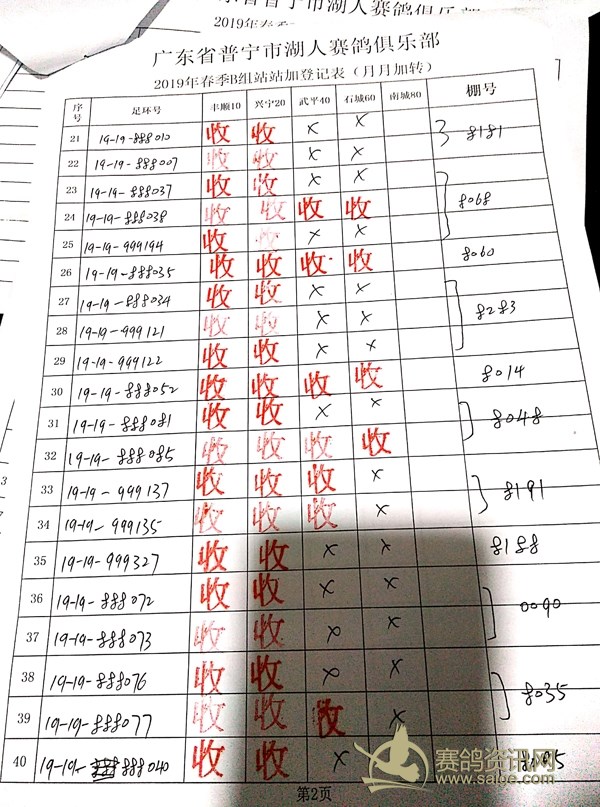 2019年春季
广东省普宁市湖人赛鸽俱乐部
2019年春季B组站站加登记表（月月加转）
序号 足环号 丰顺10 兴宁20 武平40 石城60 南城80 棚号
21 19-19-888010 收 收 × × 8181
22 19-19-888007 收 收 × ×
23 19-19-888037 收 收 × ×
24 19-19-888038 收 收 收 收 8068
25 19-19-999194 收 收 × ×
26 19-19-888035 收 收 收 收 8060
27 19-19-888034 收 收 × ×
28 19-19-999121 收 收 × × 8283
29 19-19-999122 收 收 × ×
30 19-19-888052 收 收 收 收 8014
31 19-19-888081 收 收 × × 8048
32 19-19-888085 收 收 收 收
33 19-19-999137 收 收 收 × 8191
34 19-19-999135 收 收 收 ×
35 19-19-999327 收 收 × × 8188
36 19-19-888072 收 收 × × 0090
37 19-19-888073 收 收 × ×
38 19-19-888076 收 收 × × 8035
39 19-19-888077 收 收 收 ×
40 19-19-888040 收 收 ×
第2页
赛鸽资讯网
www.saige.com